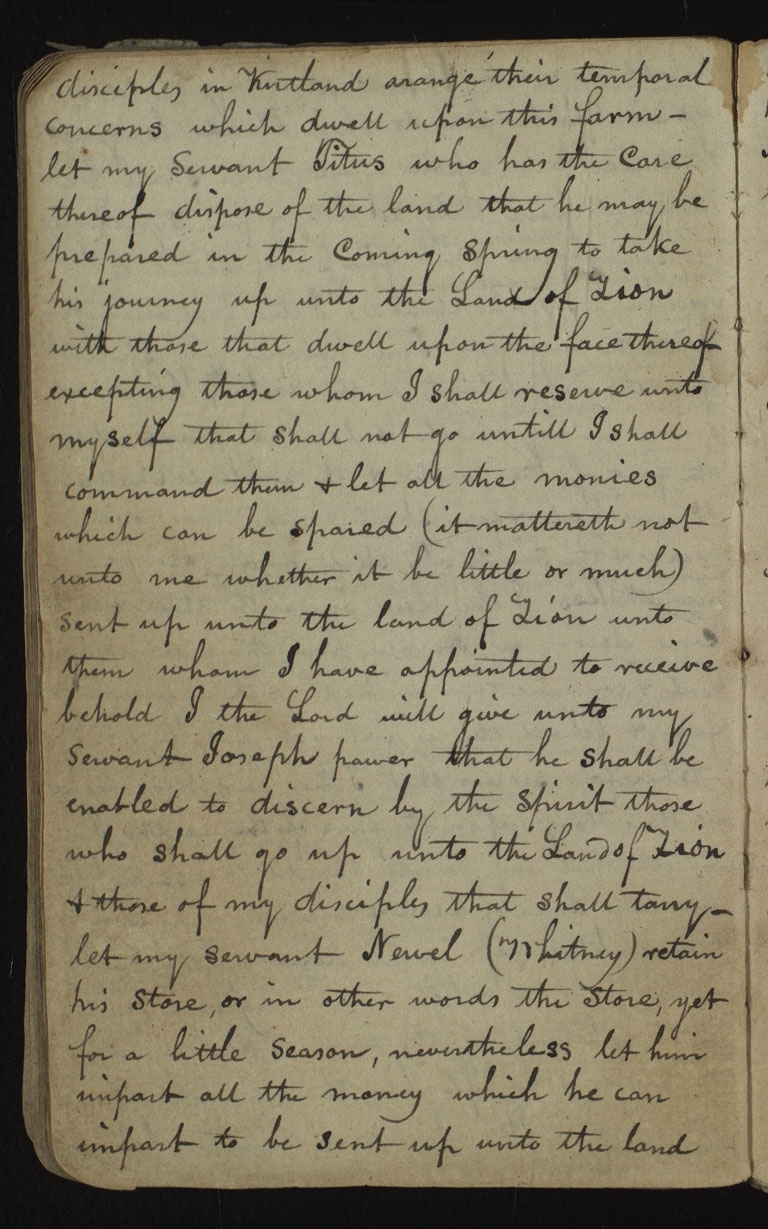 disciples in Kirtland arange their temporal
concerns which dwell upon this farm –
let my Servant Titus who has the Care
thereof dispose of the land that he may be
prepared in the Coming Spring to take
his journey up unto the Land of Zion
with those that dwell upon the face thereof
excepting those whom I shall reserve unto
myself that shall not go untill I shall
command them & let all the monies
which can be spared (it mattereth not
unto me whether it be little or much)
sent up unto the land of Zion unto
them whom I have appointed to receive
behold I the Lord will give unto my
Servant Joseph power that he shall be
enabled to discern by the Spirit those
who shall go up unto the Land of Zion
& those of my disciples that shall tarry –
let my servant Newel (Whitney) retain
his Store, or in other words the Store, yet
for a little Season, nevertheless let him
impart all the money which he can
impart to be sent up unto the land